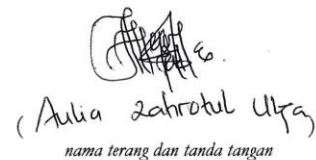 (Aulia Zahrotul Ulya)
nama terang dan tanda tangan